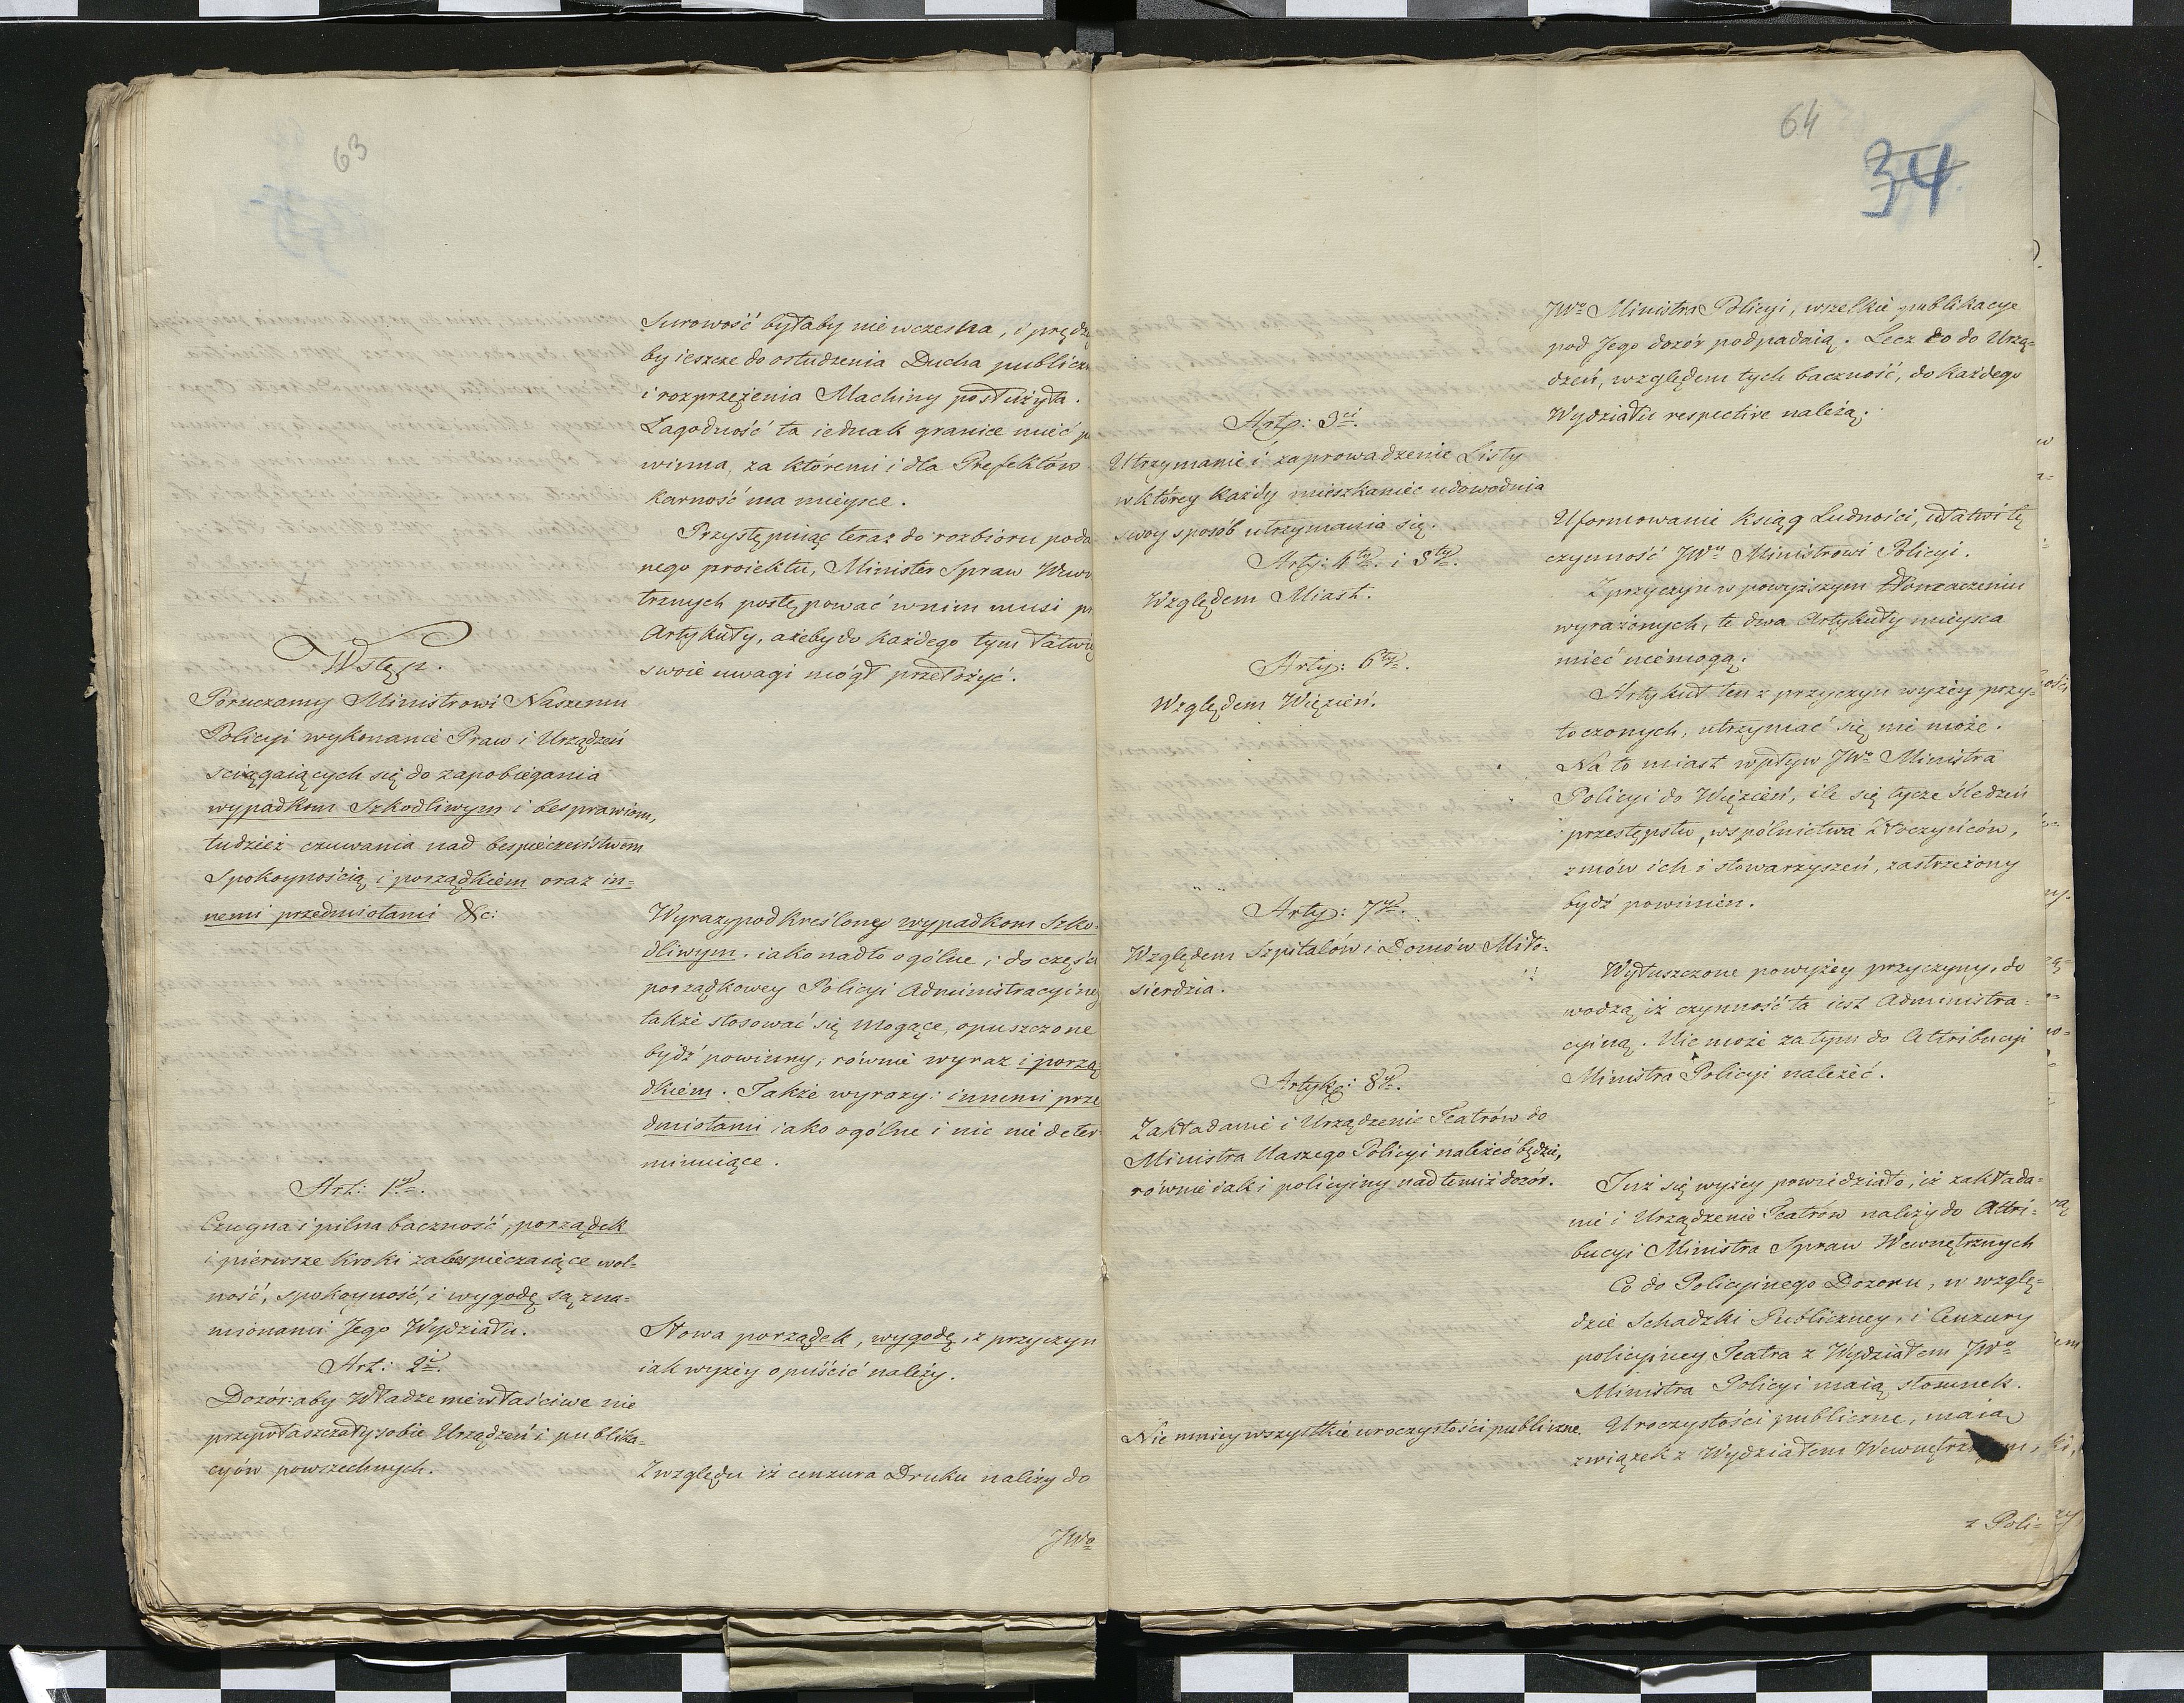 63
Wstęp.
Poruczamy Ministrowi Naszemu
Policyi wykonanie Praw i Urządzeń
sciągaiących się do zapobiegania
wypadkom Szkodliwym i besprawiom,
tudzież czuwania nad bespieczeństwem
Spokoynością i porządkiem oraz in=
nemi przedmiotami &c:
Art: 1y.
Czugna i pilna baczność, porządek
i pierwsze kroki zabespieczaiące wol=
ność, spokoyność, i wygodę są zna=
mionami Jego Wydziału.
Art: 2i.
Dozór: aby Władze niewłaściwe nie
przywłaszczały sobie Urządzeń i publika=
cyów powszechnych.
Surowość byłaby nie wczesna, i prędzę
by ieszcze do ostudzenia Ducha publiczn
i rozprzężenia Machiny posłużyła.
Łagodność ta iednak granice mieć p
winna, za któremi i dla Prefektów
karność ma mieysce.
Przystępuiąc teraz do rozbioru poda
nego proiektu, Minister Spraw Wewn
trznych postępować w nim musi pr
Artykuły, ażeby do każdego tym łatwię
swoie uwagi mógł przełożyć.
Wyrazy podkreślone wypadkom Szko=
dliwym. iako nadto ogólne i do części
porządkowey Policyi Administracyiney
także stosować się mogące, opuszczone
bydź powinny, równie wyraz i porzą
dkiem. Także wyrazy: innemi prze
dmiotami iako ogólne i nic nie deter
minuiące.
Słowa porządek, wygodę, z przyczyn
iak wyżey opuścić należy.
Zwzględu iż cenzura Druku należy do
JWo
64
34
Arty: 3ci.
Utrzymanie i zaprowadzenie Listy
w którey każdy mieszkaniec udowodnia
swoy sposób utrzymania się.
Arty: 4ty. i 5ty.
Względem Miast.
Arty: 6ty.
Względem Więzień.
Arty: 7y.
Względem Szpitalów i Domów Miło=
sierdzia.
Artyk: 8y.
Zakładanie i Urządzenie Teatrów do
Ministra Naszego Policyi należeć będzie,
równie iak i policyiny nad temiż dozór.
Nie mniey wszystkie uroczystości publiczne.
JWo Ministra Policyi, wszelkie publikacye
pod Jego dozór podpadaią. Lecz co do Urzą=
dzeń, względem tych baczność, do każdego
Wydziału respective należą.
Uformowanie Ksiąg Ludności, ułatwi tę
czynność JWu Ministrowi Policyi.
Z przyczyn w powyższym tłómaczeniu
wyrażonych, te dwa Artykuły mieysca
mieć nie mogą.
Artykuł ten z przyczyn wyżey przy=
toczonych, utrzymać się nie może.
Na to miast wpływ JWo Ministra
Policyi do Więzień, ile się tycze śledzeń
przestępstw, wspólnictwa Złoczyńców,
zmów ich i stowarzyszeń, zastrzeżony
bydź powinien.
Wyłuszczone powyżey przyczyny, do
wodzą iż czynność ta iest Administra=
cyiną. Nie może zatym do Attribucyi
Ministra Policyi należeć.
Już się wyżey powiedziało, iż zakłada=
nie i Urządzenie Teatrów należy do Attri=
bucyi Ministra Spraw Wewnętrznych
Co do Policyinego Dozoru, w wzglę=
dzie Schadzki Publiczney, i Cenzury
policyiney Teatra z Wydziałem JWo
Ministra Policyi maią stosunek.
Uroczystości publiczne, maią
związek z Wydziałem Wewnętrznym,
z Poli=